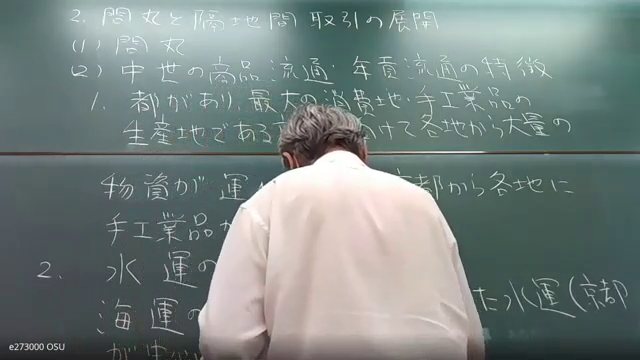 2. 問丸と隔地間取引の展開
(1) 問丸
(2) 中世の商品流通・年貢流通の特徴
1. 都があり、最大の消費地・手工業品の
生産地である けて各地から大量の
物資が運 京都から各地に
手工業品が
2. 水運の
海運の た水運(京都
が中
e273000 OSU